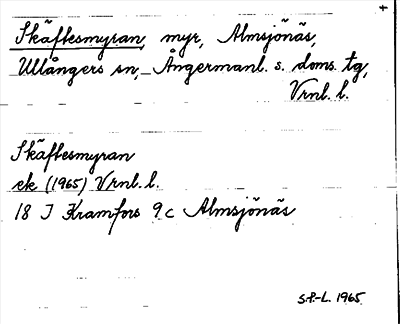 +
Skäftesmyran, myr, Almsjönäs,
Ullångers sn, Ångermanl. s. doms. tg,
Vrnl. l.
Skäftesmyran
ek (1965) Vrnl. l.
18 J Kramfors 9 c Almsjönäs
S.P-L. 1965